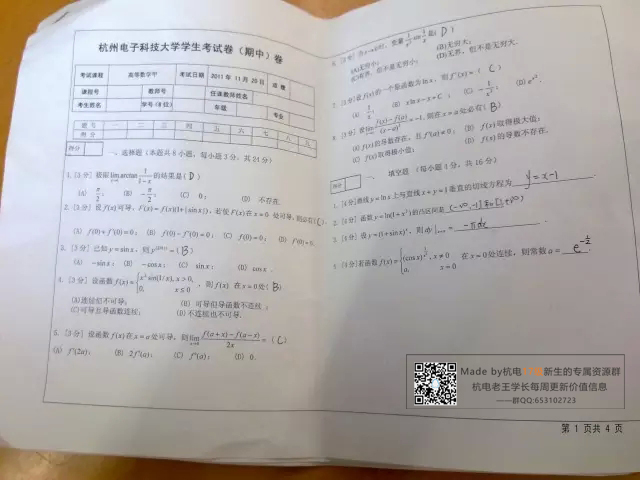 杭州电子科技大学学生考试卷（期中）卷
考试课程 高等数学甲 考试日期 2011年11月20日 成绩
课程号 教师号 任课教师姓名
考生姓名 学号（8位） 专业
题号 一 二 三 四 五 六 七 八 九
得分
得分 一、选择题（本题共8小题，每小题3分，共24分）
1.［3分］极限 lim arctan 1/(1-x) 的结果是 ( D )
(A) π/2; (B) -π/2; (C) 0; (D) 不存在.
2.［3分］设 f(x) 可导，F(x)=f(x)(1+|sin x|)，若使 F(x) 在 x=0 处可导，则必有
(A) f(0)+f'(0)=0; (B) f(0)-f'(0)=0; (C) f(0)=0; (D) f'(0)=0.
3.［3分］已知 y=sin x，则 ( B )
(A) -sin x; (B) -cos x; (C) sin x; (D) cos x.
4.［3分］设函数 f(x)={x² sin(1/x), x>0, 0, x≤0 则 f(x) 在 x=0 处( B )
(A)连续但不可导; (B) 可导但导函数不连续;
(C)可导且导函数连续; (D) 不连续也不可导.
5.［3分］设函数 f(x) 在 x=a 处可导，则 lim x→0 (f(a+x)-f(a-x))/2x = ( C )
(A) f'(2a); (B) 2f'(a); (C) f'(a); (D) 0.
( D )
(A)无穷小; (B)无穷大;
(D)无界，但不是无穷大.
7.［3分］设 f(x) 的一个原函数为 ln x，则 f'(x)= ( C )
(A) 1/x; (B) x ln x - x + C; (C) -1/x²; (D)
=-1，则在 x=a 处必有( B )
(A) f(x) 的导数存在，且 f'(a)≠0; (B) f(x) 取得极大值;
(C) f(x) 取得极小值; (D) f(x) 的导数不存在.
得分 二、填空题（每小题4分，共16分）
1.［4分］曲线 y=ln x 上与直线 x+y=1 垂直的切线方程为 y=x-1
2.［4分］函数 y=ln(1+x²) 的凸区间是 (-∞,-1] 和 [1,+∞)
3.［4分］设 y=(1+sin x)ˣ，则 dy|x=π = -πdx
4.［4分］若函数 f(x)={(cos x)^(1/x²), x≠0 a, x=0 在 x=0 处连续，则常数 a= e^(-1/2)
Made by杭电 新生的专属资源群
杭电老王学长每周更新价值信息
——群QQ:653102723
第 1 页共 4 页